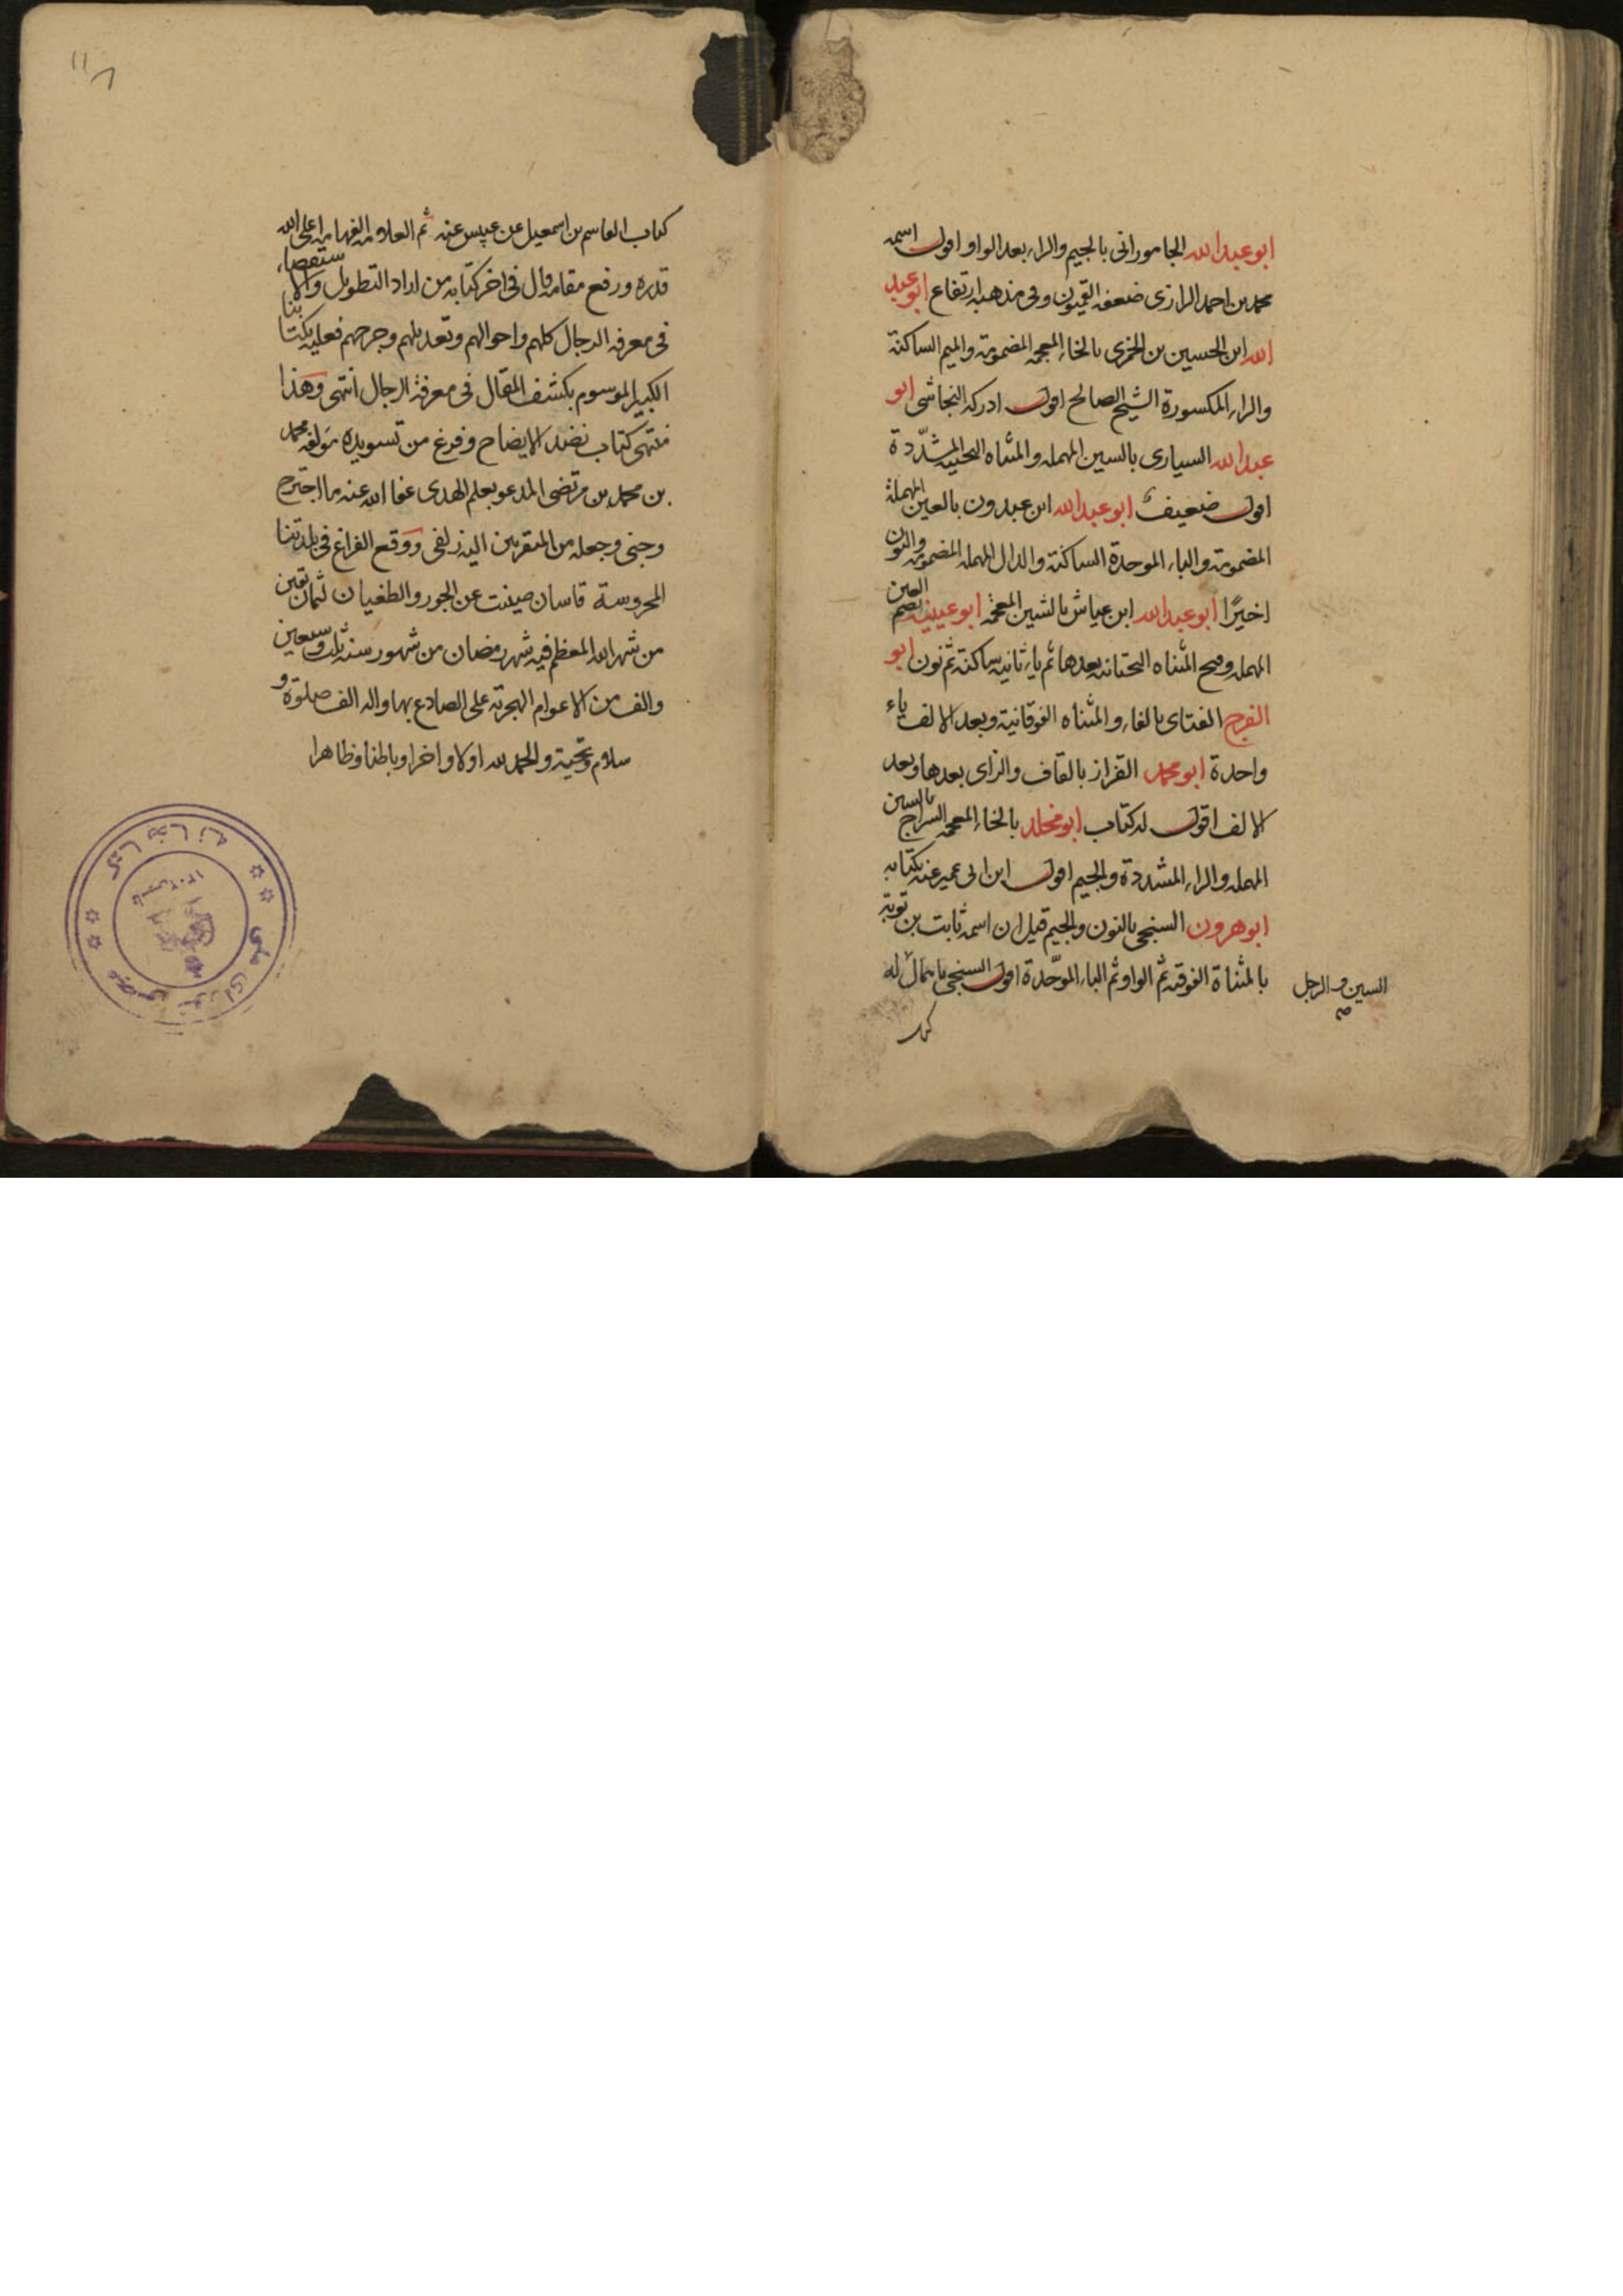 ابو عبد الله الجاموراني بالجيم والراء بعد الواو اقول اسمه
محمد بن احمد الرازى ضعفه القميون وفى مذهبه ارتفاع ابو عبد
الله ابن الحسين بن الخمرى بالخاء المعجمه المضمومة والميم الساكنة
والراء المكسورة الشيخ الصالح اقول ادركه النجاشى ابو
عبد الله السيارى بالسين المهمله والمثناه التحتيه المشدّدة
اقول ضعيف ابو عبد الله ابن عبدون بالعين المهملة
المضمومة والباء الموحدة الساكنة والدال المهمله المضمومه والنون
اخيرًا ابو عبد الله ابن عياش بالشين المعجمة ابو عيينه بضم العين
المهمله وفتح المثناه التحتانيه بعدها ثم ياء ثانيه ساكنة ثم نون ابو
الفرج الفتاى بالفاء والمثناه الفوقانية وبعد الالف ياء
واحدة ابو محمد القزاز بالقاف والزاى بعدها وبعد
الالف اقول له كتاب ابو مخلد بالخاء المعجمه السراج بالسين
المهمله والراء المشددة والجيم اقول ابن ابى عمير عنه بكتابه
ابو هرون السنجى بالنون والجيم قيل ان اسمه ثابت بن توبة
بالمثناة الفوقيه ثم الواو ثم الباء الموحّدة اقول السنجى باهمال له
السين والرجل
كتاب
كتاب القاسم بن اسمعيل عن عبيس عنه ثم العلامه الفهامه اعلى الله
قدره ورفع مقامه قال فى اخر كتابه من اراد التطويل والاستقصاء
فى معرفه الرجال كلهم واحوالهم وتعديلهم وجرحهم فعليه بكتابنا
الكبير الموسوم بكشف المقال فى معرفة الرجال انتهى وهذا
منتهى كتاب نضد الايضاح وفرغ من تسويده مؤلفه محمد
بن محمد بن مرتضى المدعو بعلم الهدى عفا الله عنه ما اجترح
وجنى وجعله من المتقربين اليه زلفى ووقع الفراغ فى بلدتنا
المحروسة قاسان صينت عن الجور والطغيان لثمان بقين
من شهر الله المعظم فيه شهر رمضان من شهور سنه ثلث وسبعين
والف من الاعوام الهجرية على الصادع بها واله الف صلوة و
سلام وتحية والحمد لله اولا واخرا وباطنا وظاهرا